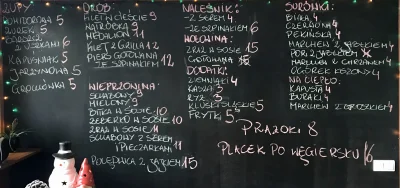 ZUPY
POMIDOROWA 5
ŻUREK 5
BARSZCZ
Z USZKAMI 6
KAPUŚNIAK 5
JARZYNOWA 5
GROCHÓWKA 5
DRÓB:
FILET W CIEŚCIE 9
NATRÓBKA 9
MEDALION 11
FILET Z GRILLA 12
PIERŚ GOTOWANA
ZE SZPINAKIEM 12
WIEPRZOWINA:
SCHABOWY 9
MIELONY 9
BITKA W SOSIE 10
ŻEBERKO W SOSIE 10
ZRAZ W SOSIE 11
SCHABOWY Z SEREM
I PIECZARKAMI 11
POLĘDWICA Z JAJKIEM 15
NALEŚNIK:
-Z SEREM 4
-ZE SZPINAKIEM 6
WOŁOWINA:
ZRAZ W SOSIE 15
GOTOWANA 15
DODATKI:
ZIEMNIAKI 4
KASZA 4
RYŻ 5
KLUSKI ŚLĄSKIE 5
FRYTKI 5
SURÓWKI:
BIAŁA 4
CZERWONA 4
PEKIŃSKA 4
MARCHEW Z JABŁKIEM 4
POR Z JABŁKIEM
MARCHEW Z CHRZANEM 4
OGÓREK KISZONY 4
NA CIEPŁO:
KAPUSTA 4
BURAKI 4
MARCHEW Z GROSZKIEM 4
PRAŻOKI 8
PLACEK PO WĘGIERSKU 16